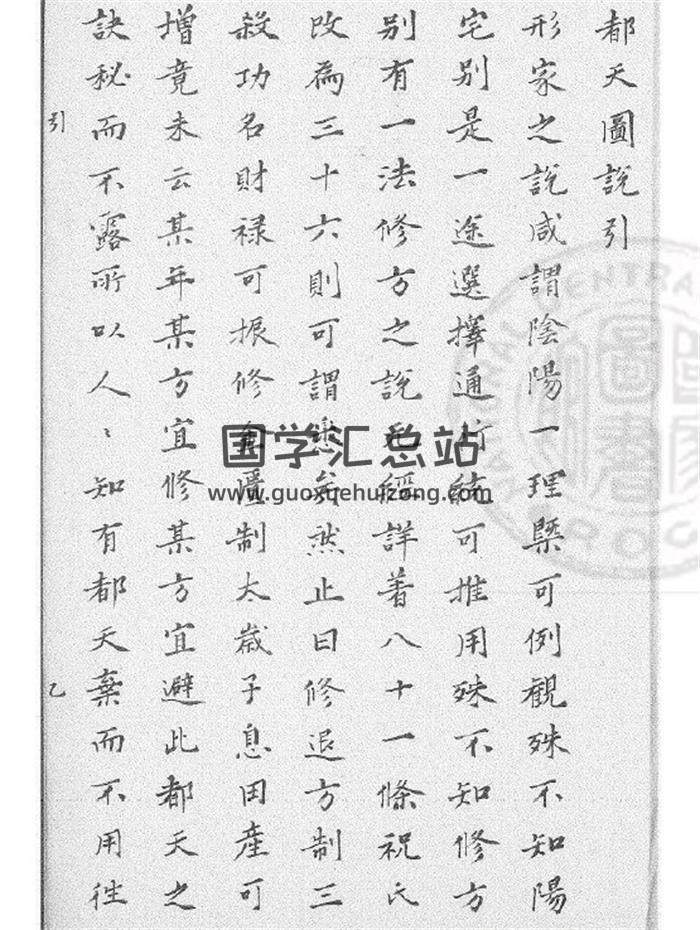 都天圖說引
形家之說咸謂陰陽一理槩可例觀殊不知陽
宅別是一途選擇通行統可推用殊不知修方
別有一法修方之說經詳著八十一條祝氏
改為三十六則可謂矣然止曰修退方制三
殺功名財祿可振修制太歲子息田產可
增竟未云某年某方宜修某方宜避此都天之
訣秘而不露所以人〻知有都天棄而不用徃
引
乙
国学汇总站
www.guoxuehuizong.com
NATIONAL CENTRAL